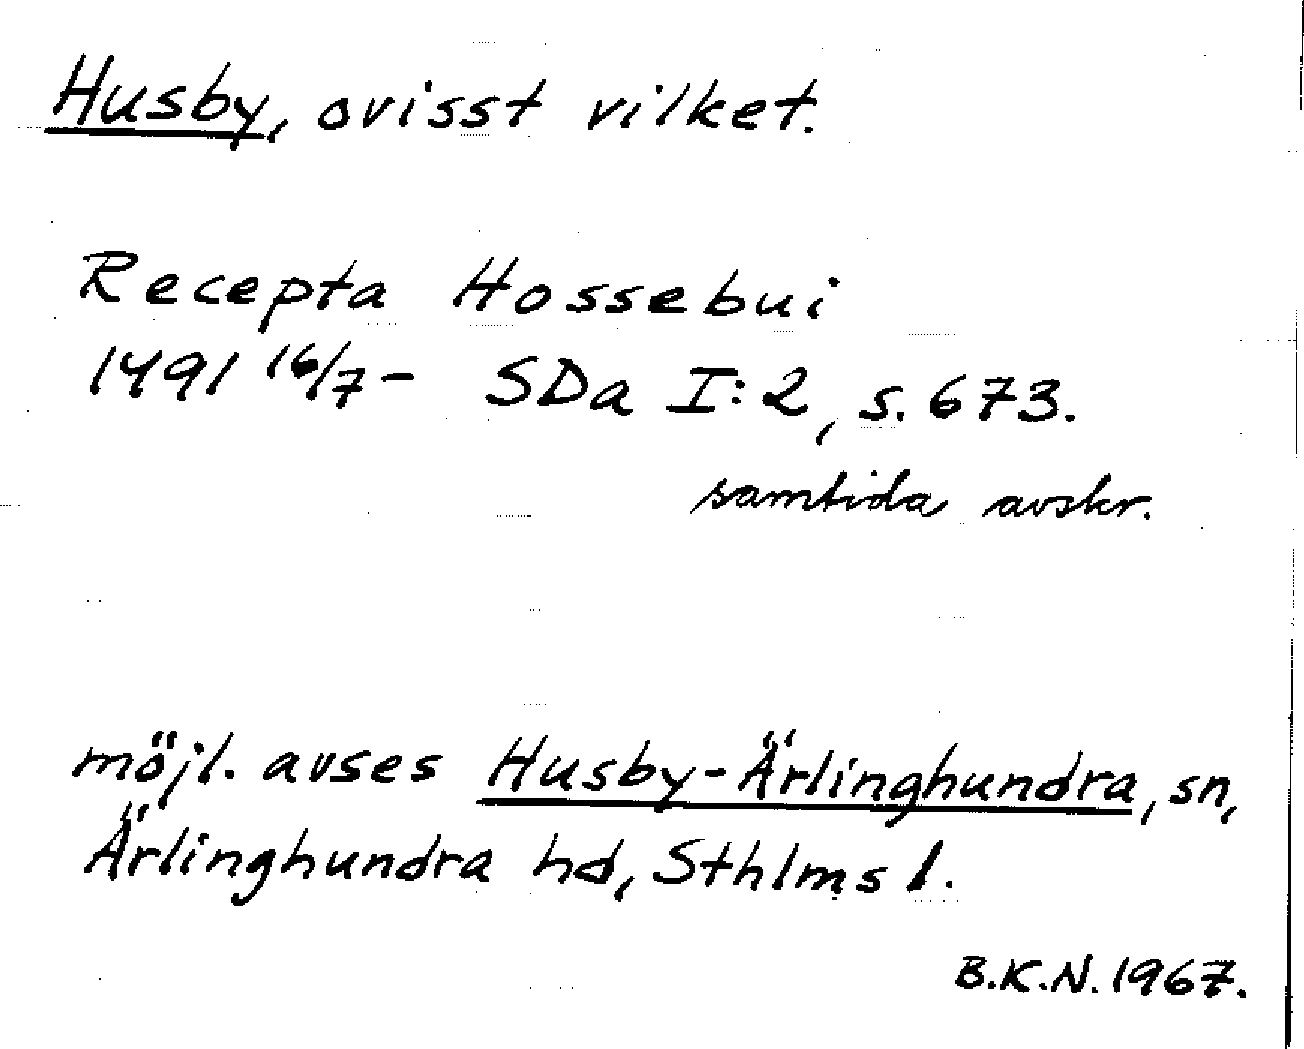 Husby, ovisst vilket.
Recepta Hossebui
1491 16/7 - SDa I:2, s. 673.
samtida avskr.
möjl. avses Husby-Ärlinghundra, sn,
Ärlinghundra hd, Sthlms l.
B.K.N. 1967.